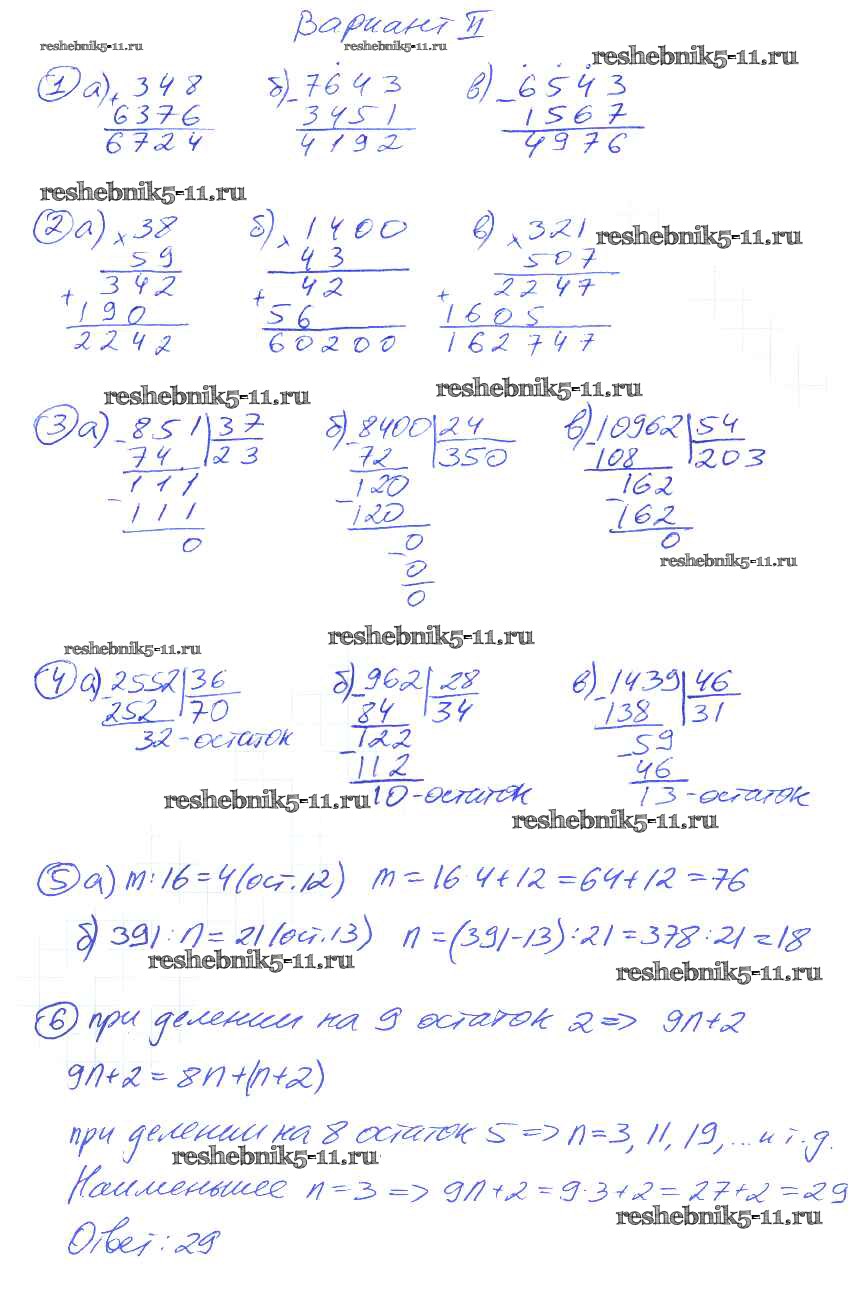 Вариант II
reshebnik5-11.ru reshebnik5-11.ru reshebnik5-11.ru
1 а) + 348 б) - 7643 в) - 6543
6376 3451 1567
6724 4192 4976
reshebnik5-11.ru
2 а) × 38 б) × 1400 в) × 321 reshebnik5-11.ru
59 43 507
+ 342 + 42 + 2247
190 56 1605
2242 60200 162747
reshebnik5-11.ru reshebnik5-11.ru
3 а) - 851 | 37 б) - 8400 | 24 в) - 10962 | 54
74 | 23 72 | 350 108 | 203
- 111 - 120 - 162
111 120 162
0 0 0
- 0
0
reshebnik5-11.ru
reshebnik5-11.ru reshebnik5-11.ru
4 а) - 2552 | 36 б) - 962 | 28 в) - 1439 | 46
252 | 70 84 | 34 138 | 31
32 - остаток - 122 - 59
112 46
reshebnik5-11.ru 10 - остаток 13 - остаток
reshebnik5-11.ru
5 а) m:16=4(ост.12) m=16·4+12=64+12=76
б) 391:n=21(ост.13) n=(391-13):21=378:21=18
reshebnik5-11.ru reshebnik5-11.ru
6 при делении на 9 остаток 2=> 9n+2
9n+2=8n+(n+2)
при делении на 8 остаток 5=> n=3, 11, 19, ... и т.д.
reshebnik5-11.ru
Наименьшее n=3=> 9n+2=9·3+2=27+2=29
reshebnik5-11.ru
Ответ: 29